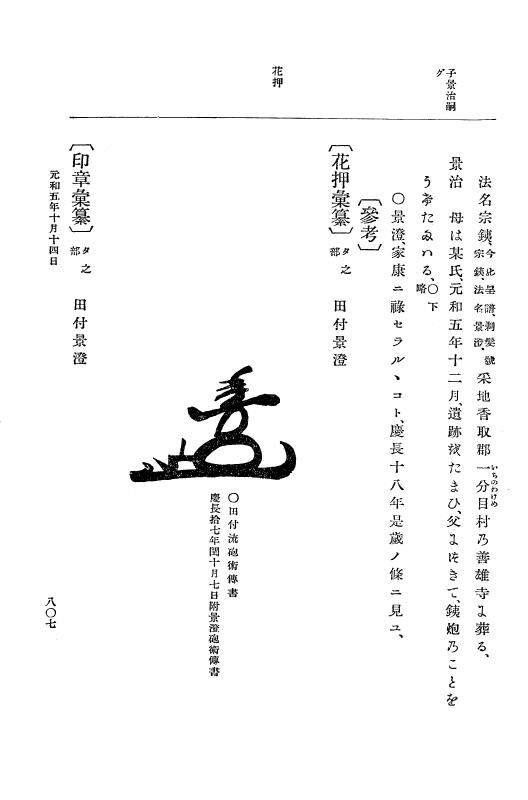 子景治嗣
グ
花押
法名宗鉄、今此呈譜、剃髪號宗鉄、法名景澄、采地香取郡一分目村乃善雄寺に葬る、
いちのわけめ
景治 母は某氏、元和五年十二月、遺跡をたまひ、父につきて、鉄炮乃ことを
うけたまハる、〇下略
〔參考〕
〇景澄、家康ニ祿セラルヽコト、慶長十八年是歲ノ條ニ見ユ、
〔花押彙纂〕タ之部 田付景澄
〇田付流砲術傳書
慶長拾七年閏十月七日附景澄砲術傳書
〔印章彙纂〕タ之部 田付景澄
元和五年十月十四日
八〇七